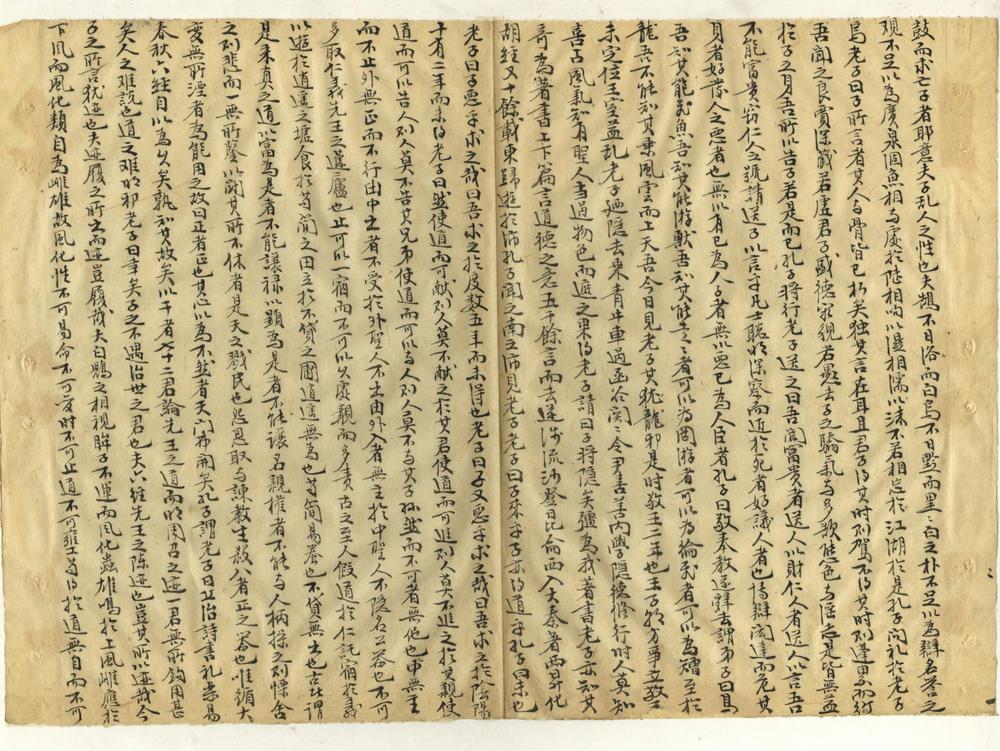 鼓而求亡子者耶意夫子乱人之性也夫鵠不日浴而白烏不日黔而黑〻白之朴不足以為辯名誉之
观不足以為廣泉涸魚相与處於陸相呴以濕相濡以沫不若相忘於江湖於是孔子问礼於老子
焉老子曰子所言者其人与骨皆已朽矣独其言在耳且君子得其时则駕不得其时则蓬累而行
吾闻之良賈深蔵若虚君子盛德容貌若愚去子之驕氣与多欲態色与淫志是皆無益
於子之身吾所以告子若是而已孔子將行老子送之曰吾闻富貴者送人以財仁人者送人以言吾
不能富貴窃仁人之號請送子以言乎凡士聡明深察而近於死者好議人者也博辯閎達而危其
身者好發人之悪者也無以有已為人子者無以悪已為人臣者孔子曰敬奉教遂辞去謂弟子曰鳥
吾知其能飛魚吾知其能游獸吾知其能走〻者可以為罔游者可以為綸飛者可以為矰至於
龍吾不能知其乗風雲而上天吾今日見老子其犹龍邪是时敬王二年也王子朝方爭立敬王
未定位王室益乱老子廼隱去乗青牛車過函谷関〻令尹喜善內学隱德修行时人莫知
喜占風氣知有聖人当過物色而遮之果得老子請曰子将隱矣彊為我著書老子亦知其
奇為著書上下篇言道德之意五千餘言而去遂涉流沙登昆侖西入大秦著西昇化
胡經又十餘載東歸遊於沛孔子闻之南之沛見老子老子曰子來乎子亦得道乎孔子曰未也
老子曰子悪乎求之哉曰吾求之於度数五年而未得也老子曰子又悪乎求之哉曰吾求之於陰陽
十有二年而未得老子曰然使道而可献则人莫不献之於其君使道而可進则人莫不進之於其親使
道而可以告人则人莫不告其兄弟使道而可以与人则人莫不与其子孫然而不可者無他也中無主
而不止外無正而不行由中出者不受於外聖人不出由外入者無主於中聖人不隱名公器也不可
多取仁義先王之蘧廬也止可以一宿而不可以久處覯而多責古之至人假道於仁託宿於義
以遊於逍遙之墟食於苟簡之田立於不貸之圃逍遙無為也苟簡易養也不貸無出也古者謂
是采真之道以富為是者不能讓禄以顯為是者不能讓名親權者不能与人柄操之则慄舍
之则悲而一無所鑒以闚其所不休者是天之戮民也怨恩取与諫教生殺八者正之器也唯循大
變無所湮者為能用之故曰正者正也其心以為不然者天门弗開矣孔子謂老子曰丘治詩書礼楽易
春秋六經自以為久矣孰知其故矣以干者七十二君論先王之道而明周召之迹一君無所鈎用甚
矣人之難説也道之難明邪老子曰幸矣子之不遇治世之君也夫六經先王之陈迹也豈其所以迹哉今
子之所言犹迹也夫迹履之所出而迹豈履哉夫白鶂之相視眸子不運而風化蟲雄鳴於上風雌應於
下風而風化類自為雌雄故風化性不可易命不可變时不可止道不可壅苟得於道無自而不可